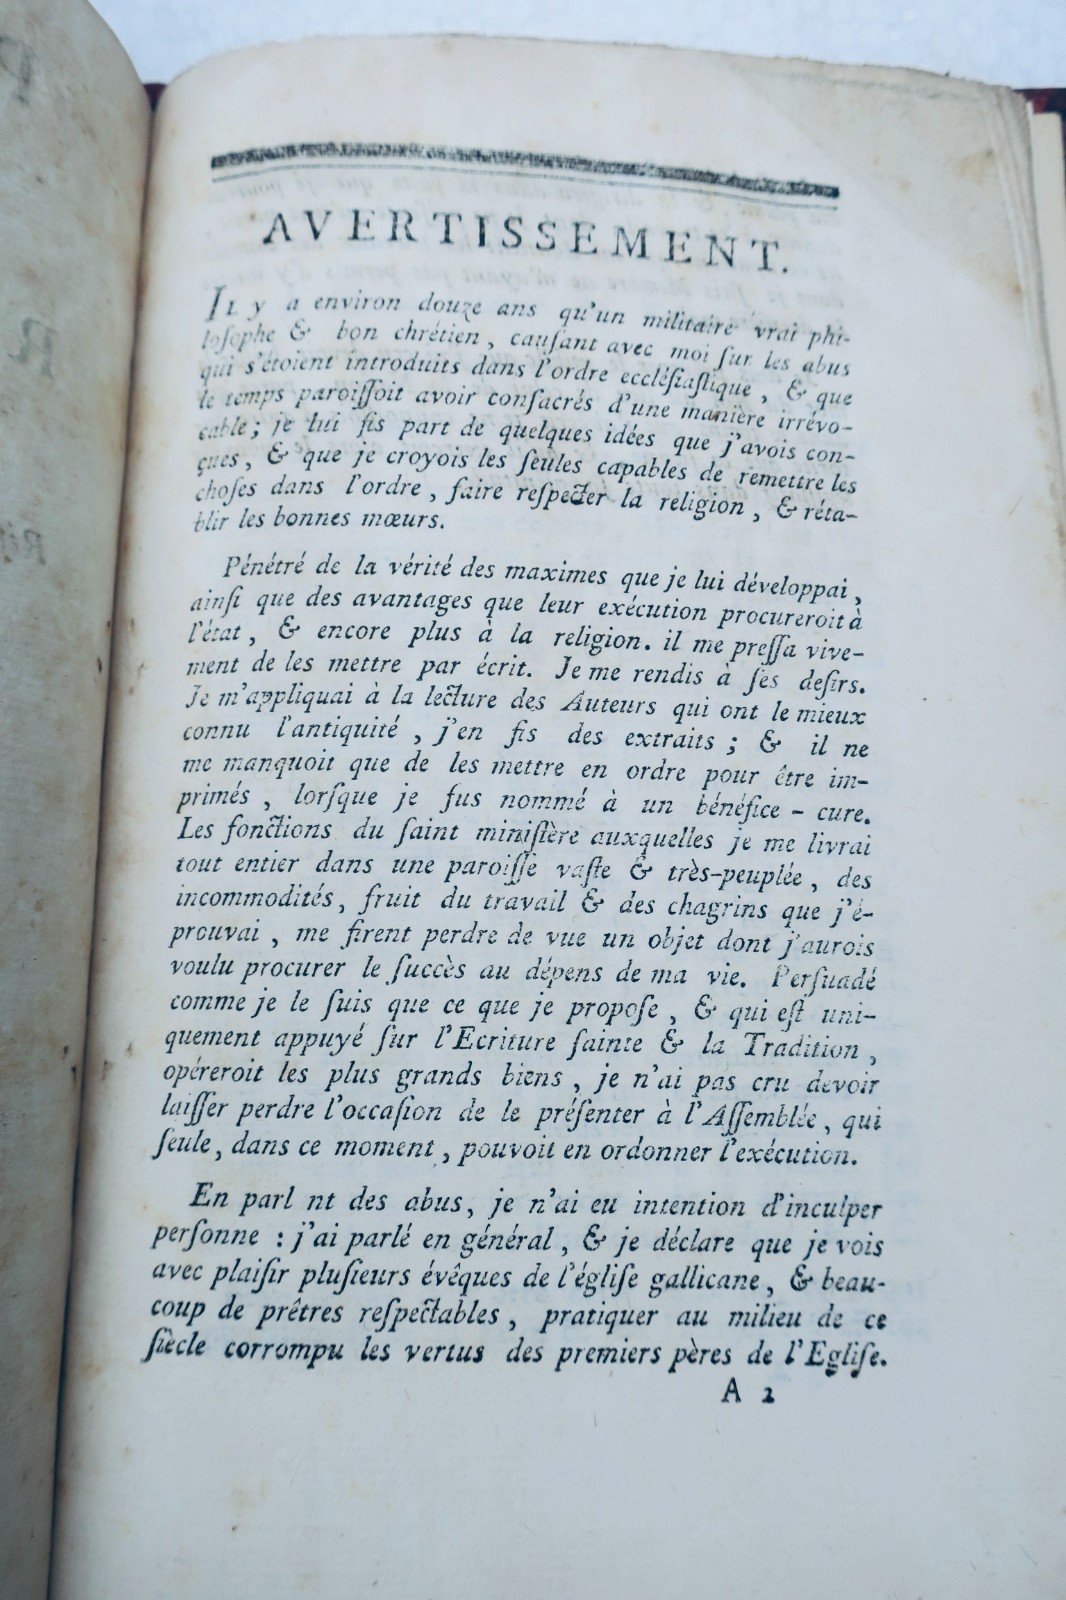 AVERTISSEMENT.
IL y a environ douze ans qu'un militaire vrai phi-
losophe & bon chrétien, causant avec moi sur les abus
qui s'étoient introduits dans l'ordre ecclésiastique, & que
le temps paroissoit avoir consacrés d'une manière irrévo-
cable; je lui fis part de quelques idées que j'avois con-
çues, & que je croyois les seules capables de remettre les
choses dans l'ordre, faire respecter la religion, & réta-
blir les bonnes mœurs.
Pénétré de la vérité des maximes que je lui développai,
ainsi que des avantages que leur exécution procureroit à
l'état, & encore plus à la religion. il me pressa vive-
ment de les mettre par écrit. Je me rendis à ses desirs.
Je m'appliquai à la lecture des Auteurs qui ont le mieux
connu l'antiquité, j'en fis des extraits; & il ne
me manquoit que de les mettre en ordre pour être im-
primés, lorsque je fus nommé à un bénéfice-cure.
Les fonctions du saint ministère auxquelles je me livrai
tout entier dans une paroisse vaste & très-peuplée, des
incommodités, fruit du travail & des chagrins que j'é-
prouvai, me firent perdre de vue un objet dont j'aurois
voulu procurer le succès au dépens de ma vie. Persuadé
comme je le suis que ce que je propose, & qui est uni-
quement appuyé sur l'Ecriture sainte & la Tradition,
opéreroit les plus grands biens, je n'ai pas cru devoir
laisser perdre l'occasion de le présenter à l'Assemblée, qui
seule, dans ce moment, pouvoit en ordonner l'exécution.
En parl nt des abus, je n'ai eu intention d'inculper
personne : j'ai parlé en général, & je déclare que je vois
avec plaisir plusieurs évêques de l'église gallicane, & beau-
coup de prêtres respectables, pratiquer au milieu de ce
siècle corrompu les vertus des premiers pères de l'Eglise.
A 2